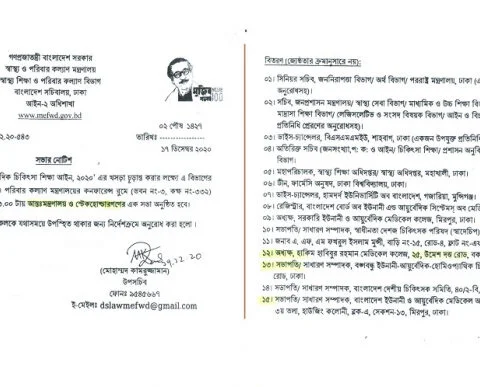 গণপ্রজাতন্ত্রী বাংলাদেশ সরকার
স্বাস্থ্য ও পরিবার কল্যাণ মন্ত্রণালয়
স্বাস্থ্য শিক্ষা ও পরিবার কল্যাণ বিভাগ
বাংলাদেশ সচিবালয়, ঢাকা
আইন-২ অধিশাখা
www.mefwd.gov.bd
মুজিব
১০০
০২ পৌষ ১৪২৭
২.২০-৫৪৩
তারিখঃ
১৭ ডিসেম্বর ২০২০
সভার নোটিশ
চিকিৎসা শিক্ষা আইন, ২০২০' এর খসড়া চূড়ান্ত করার লক্ষ্যে এ বিভাগের
পরিবার কল্যাণ মন্ত্রণালয়ের কনফারেন্স রুমে (ভবন নং-৩, কক্ষ নং-৩৩২)
৩.০০ টায় আন্তঃমন্ত্রণালয় ও স্টেকহোল্ডারগণের এক সভা অনুষ্ঠিত হবে।
যথাসময়ে উপস্থিত থাকার জন্য নির্দেশক্রমে অনুরোধ করা হলো।
12 20
(মোহাম্মদ কামরুজ্জামান)
উপসচিব
ফোনঃ ৯৫৪৫৬৬৭
ই-মেইলঃ dslawmefwd@gmail.com
বিতরণ (জ্যেষ্ঠতার ক্রমানুসারে নয়):
০১। সিনিয়র সচিব, জননিরাপত্তা বিভাগ/ অর্থ বিভাগ/ পররাষ্ট্র মন্ত্রণালয়, ঢাকা
অনুরোধসহ)।
০২। সচিব, জনপ্রশাসন মন্ত্রণালয়/ স্বাস্থ্য সেবা বিভাগ/ মাধ্যমিক ও উচ্চ শিক্ষা
মাদ্রাসা শিক্ষা বিভাগ/ লেজিসলেটিভ ও সংসদ বিষয়ক বিভাগ/ আইন ও
প্রতিনিধি প্রেরণের অনুরোধসহ)।
০৩। ভাইস-চ্যান্সেলর, বিএসএমএমইউ, শাহবাগ, ঢাকা (একজন উপযুক্ত
০৪। অতিরিক্ত সচিব (জনসংখ্যা,প: ক: ও আইন/ চিকিৎসা শিক্ষা/ প্রশাসন
বিভাগ।
০৫। মহাপরিচালক, স্বাস্থ্য শিক্ষা অধিদপ্তর/ স্বাস্থ্য অধিদপ্তর, মহাখালী, ঢাকা।
০৬। ডীন, ফার্মেসি অনুষদ, ঢাকা বিশ্ববিদ্যালয়, ঢাকা।
০৭। ভাইস-চ্যান্সেলর, হামদর্দ ইউনিভার্সিটি বাংলাদেশ, গজারিয়া, মুন্সিগঞ্জ।
০৮। রেজিস্ট্রার, বাংলাদেশ বোর্ড অব ইউনানী এন্ড আয়ুর্বেদিক সিস্টেমস অব
০৯। অধ্যক্ষ, সরকারি ইউনানী ও আয়ুর্বেদিক মেডিকেল কলেজ, মিরপুর, ঢাকা।
১০। সভাপতি/ সাধারণ সম্পাদক, স্বাধীনতা দেশজ চিকিৎসক পরিষদ
১১। জনাব এ. এফ. এম ফখরুল ইসলাম মুন্সী, বাড়ি নং-১৫, রোড-৪,
১২। অধ্যক্ষ, হাকিম হাবিবুর রহমান মেডিকেল কলেজ, ২৫, উমেশ দত্ত রোড,
১৩। সভাপতি/ সাধারণ সম্পাদক, বঙ্গবন্ধু ইউনানী-আয়ুর্বেদিক-হোমিওপ্যাথিক
রোড, ঢাকা।
১৪। সভাপতি/ সাধারণ সম্পাদক, বাংলাদেশ দেশীয় চিকিৎসক সমিতি, ৪০/২-বি,
১৫। সভাপতি/ সাধারণ সম্পাদক, বাংলাদেশ ইউনানী ও আয়ুর্বেদিক মেডিকেল
৩য় তলা, হাউজিং কলোনী, ব্লক-এ, সেকশন-১৩, মিরপুর, ঢাকা।